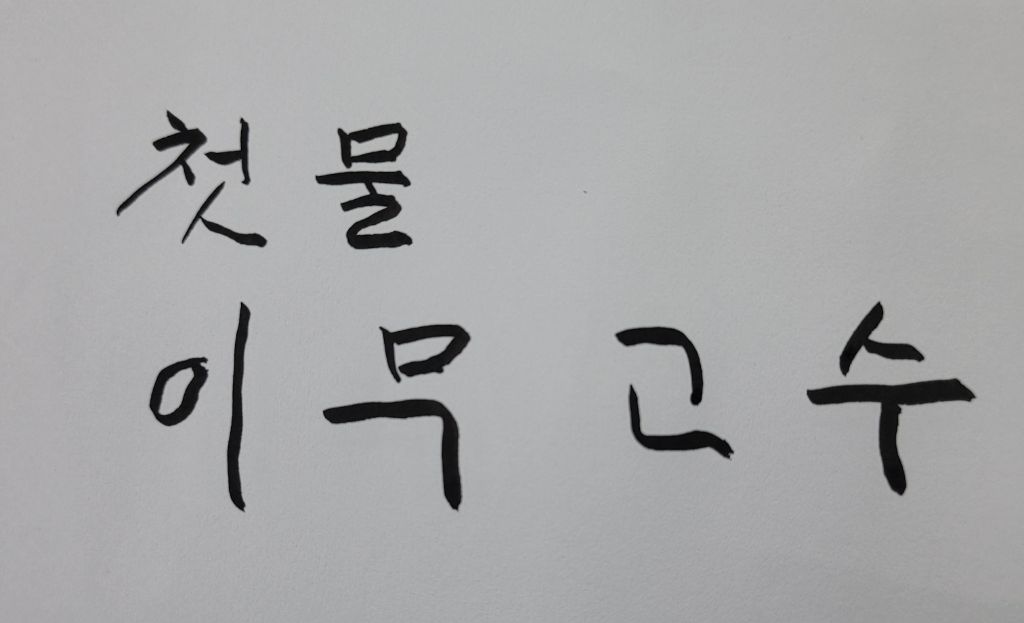 첫물
이무고수